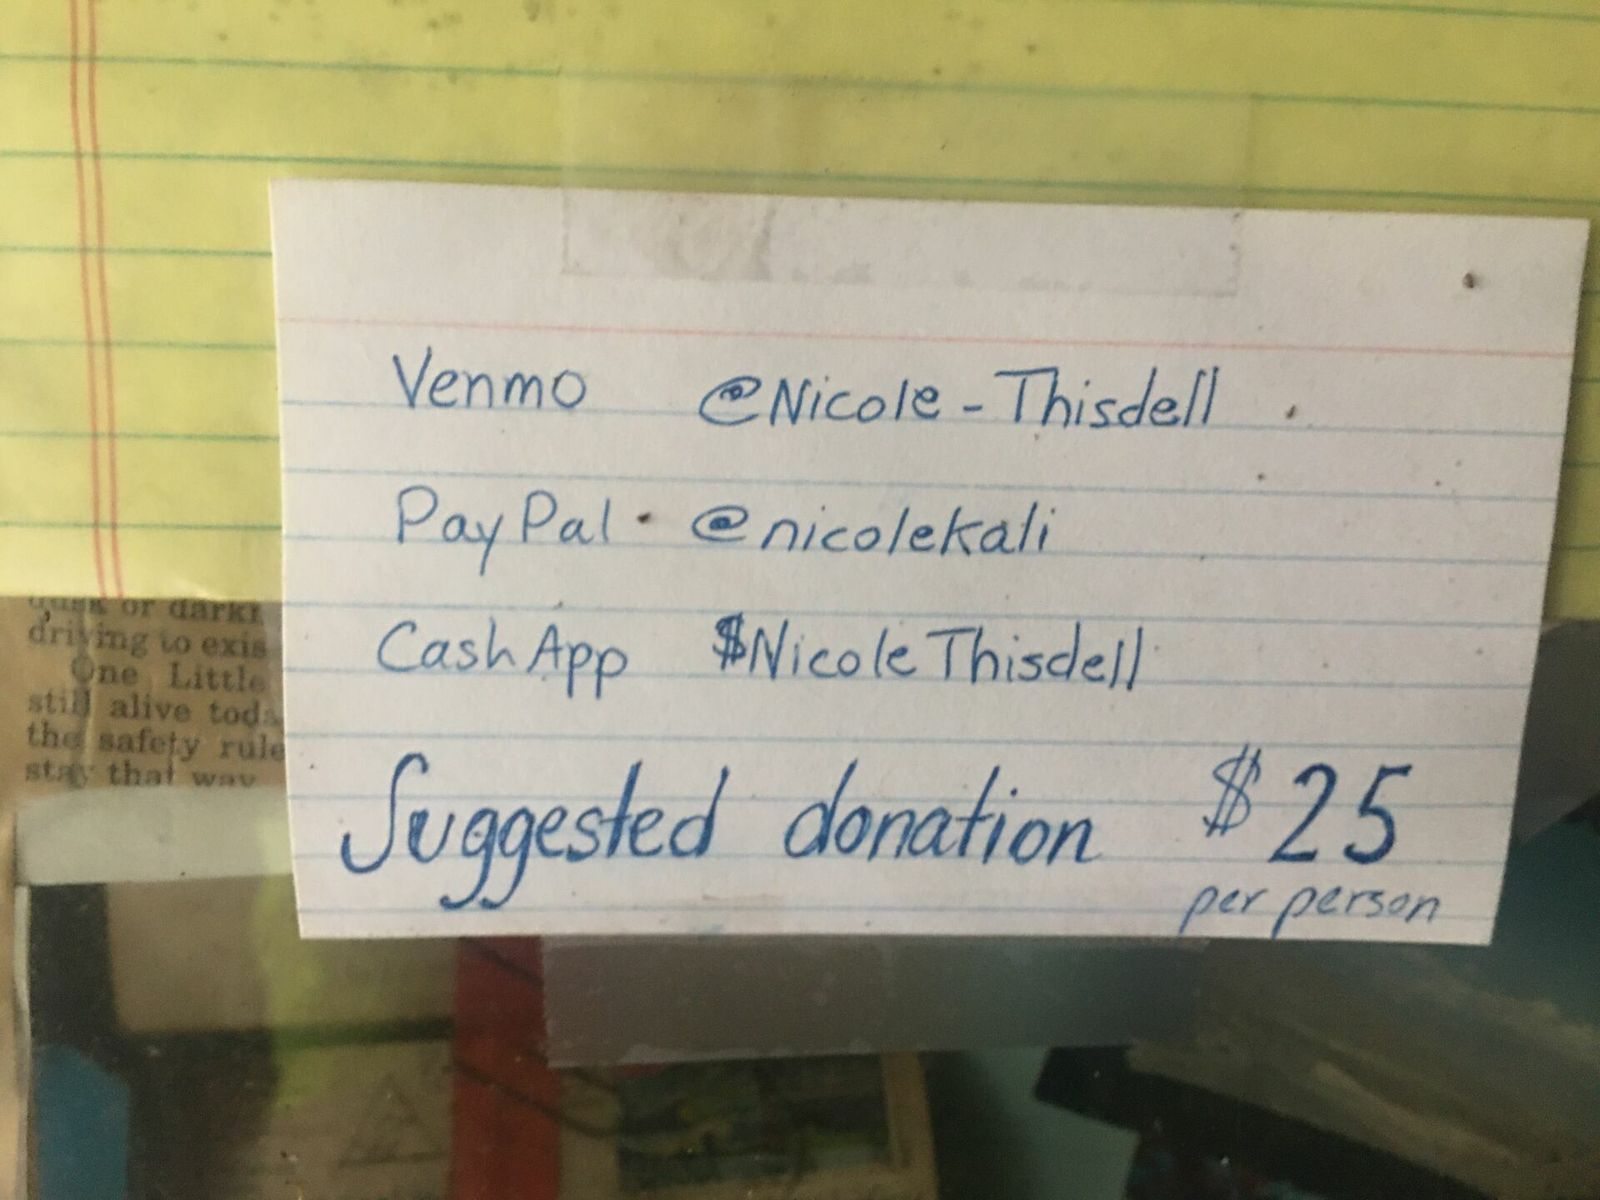 Venmo @Nicole-Thisdell
PayPal @nicolekali
CashApp $NicoleThisdell
Suggested donation $25
per person
dusk or dark
driving to exis
One Little
still alive toda
the safety rule
stay that way